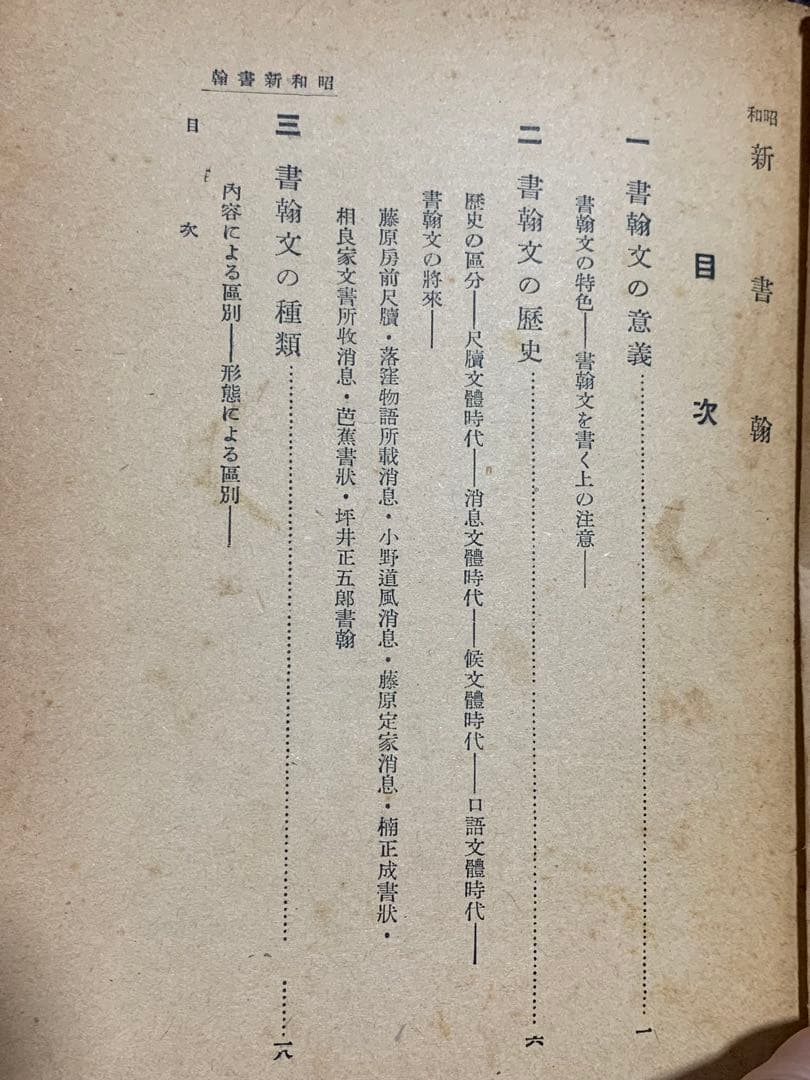 昭和 新書翰
目次
一 書翰文の意義……………………一
書翰文の特色――書翰文を書く上の注意――
二 書翰文の歷史……………………六
歷史の區分――尺牘文體時代――消息文體時代――候文體時代――口語文體時代――
書翰文の將來――
藤原房前尺牘・落窪物語所載消息・小野道風消息・藤原定家消息・楠正成書狀・
相良家文書所收消息・芭蕉書狀・坪井正五郎書翰
三 書翰文の種類……………………一八
內容による區別――形態による區別――
目次
昭和新書翰